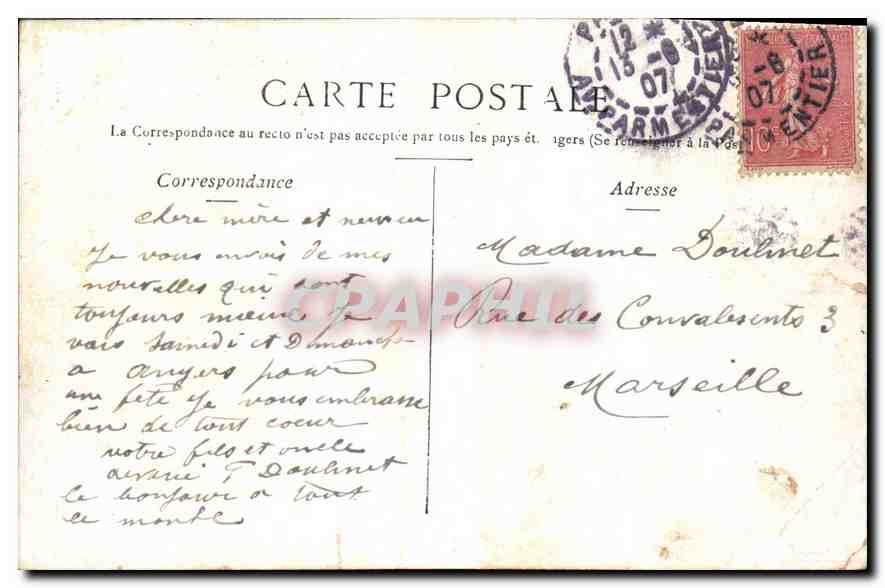 CARTE POSTALE
La Correspondance au recto n'est pas acceptée par tous les pays ét. ngers (Se renseigner à la Post
Correspondance
chere mère et neuveu
Je vous envois de mes
nouvelles qui sont
toujours mieux Je
vais Samedi et Dimanche
a angers pour
une fête Je vous embrasse
bien de tout coeur
votre fils et oncle
T Doulmet
le bonjour a tout
le monde
Adresse
Madame Doulmet
Rue des Convalesents 3
Marseille
12 *
15 -6
07
AV. PARMENTIER
-6
07
PARMENTIER
10
CPAPHIL